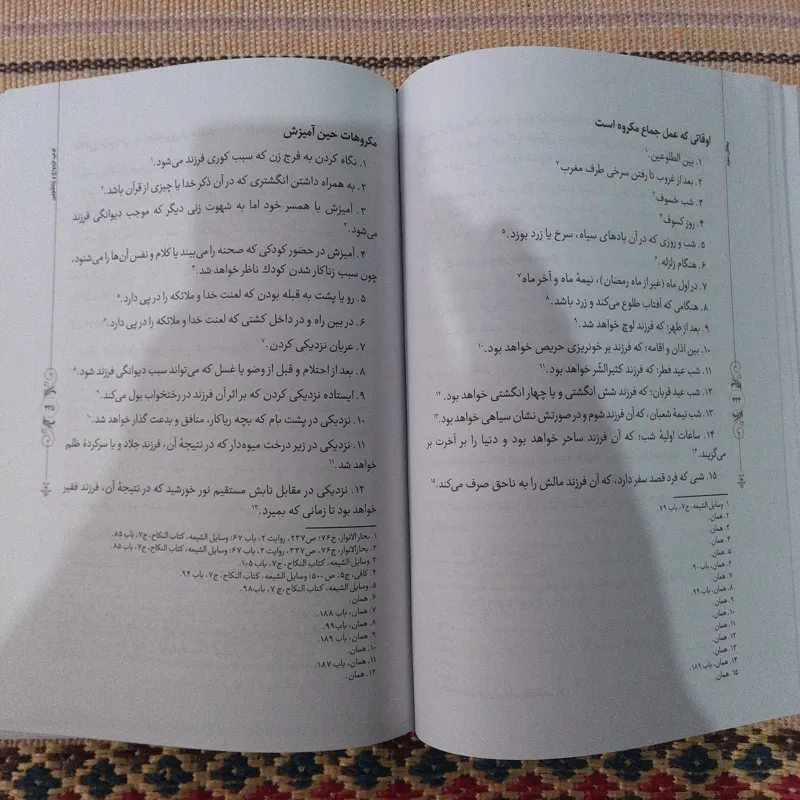 اوقاتی که عمل جماع مکروه است
۱. بین الطلوعین.۱
۲. بعد از غروب تا رفتن سرخی طرف مغرب۲
۳. شب خسوف۳
۴. روز کسوف۴
۵. شب و روزی که در آن بادهای سیاه، سرخ یا زرد بوزد.۵
۶. هنگام زلزله.۶
۷. در اول ماه (غیر از ماه رمضان)، نیمۀ ماه و آخر ماه۷
۸. هنگامی که آفتاب طلوع می‌کند و زرد باشد.۸
۹. بعد از ظهر؛ که فرزند لوچ خواهد شد.۹
۱۰. بین اذان و اقامه؛ که فرزند بر خونریزی حریص خواهد بود.۱۰
۱۱. شب عید فطر؛ که فرزند کثیرالشّر خواهد بود.۱۱
۱۲. شب عید قربان؛ که فرزند شش انگشتی و یا چهار انگشتی خواهد بود.۱۲
۱۳. شب نیمۀ شعبان، که آن فرزند شوم و در صورتش نشان سیاهی خواهد بود.۱۳
۱۴. ساعات اولیۀ شب؛ که آن فرزند ساحر خواهد بود و دنیا را بر آخرت بر
می‌گزیند.۱۴
۱۵. شبی که فرد قصد سفر دارد، که آن فرزند مالش را به ناحق صرف می‌کند.۱۵
۱. وسایل الشیعه، ج۷، باب ۷۹.
۲. همان.
۳. همان.
۴. همان.
۵. همان.
۶. همان، باب ۹۰.
۷. همان.
۸. همان، باب ۹۹.
۹. همان.
۱۰. همان.
۱۱. همان.
۱۲. همان.
۱۳. همان.
۱۴. همان، باب ۱۸۹.
۱۵. همان.
مکروهات حین آمیزش
۱. نگاه کردن به فرج زن که سبب کوری فرزند می‌شود.۱
۲. به همراه داشتن انگشتری که در آن ذکر خدا یا چیزی از قرآن باشد.۲
۳. آمیزش با همسر خود اما به شهوت زنی دیگر که موجب دیوانگی فرزند
می‌شود.۳
۴. آمیزش در حضور کودکی که صحنه را می‌بیند یا کلام و نفس آن‌ها را می‌شنود،
چون سبب زناکار شدن کودک ناظر خواهد شد.۴
۵. رو یا پشت به قبله بودن که لعنت خدا و ملائکه را در پی دارد.۵
۶. در بین راه و در داخل کشتی که لعنت خدا و ملائکه را در پی دارد.۶
۷. عریان نزدیکی کردن.۷
۸. بعد از احتلام و قبل از وضو یا غسل که می‌تواند سبب دیوانگی فرزند شود.۸
۹. ایستاده نزدیکی کردن که بر اثر آن فرزند در رختخواب بول می‌کند.۹
۱۰. نزدیکی در پشت بام که بچه ریاکار، منافق و بدعت گذار خواهد شد.۱۰
۱۱. نزدیکی در زیر درخت میوه‌دار که در نتیجۀ آن، فرزند جلاد و یا سرکردۀ ظلم
خواهد شد.۱۱
۱۲. نزدیکی در مقابل تابش مستقیم نور خورشید که در نتیجۀ آن، فرزند فقیر
خواهد بود تا زمانی که بمیرد.۱۲
۱. بحارالانوار، ج۷۶؛ ص۲۳۷، روایت ۲، باب ۶۷؛ وسایل الشیعه، کتاب النکاح، ج۷، باب ۸۵.
۲. بحارالانوار، ج۷۶؛ ص۳۳۷، روایت ۲، باب ۶۷؛ وسایل الشیعه، کتاب النکاح، ج۷، باب ۸۵.
۳. وسایل الشیعه، کتاب النکاح، ج۷، باب ۱۰۵.
۴. کافی، ج۵، ص ۵۰۰؛ وسایل الشیعه، کتاب النکاح، ج۷، باب ۹۴.
۵. وسایل الشیعه، کتاب النکاح، ج ۷، باب۹۸.
۶. همان.
۷. همان، باب ۱۸۸.
۸. همان، باب۹۹.
۹. همان، باب ۱۸۹.
۱۰. همان.
۱۱. همان، باب ۱۸۷.
۱۲. همان.